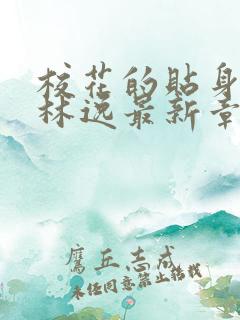 校花的贴身
林逸最新章
鹰丘志成
未经同意禁止转载